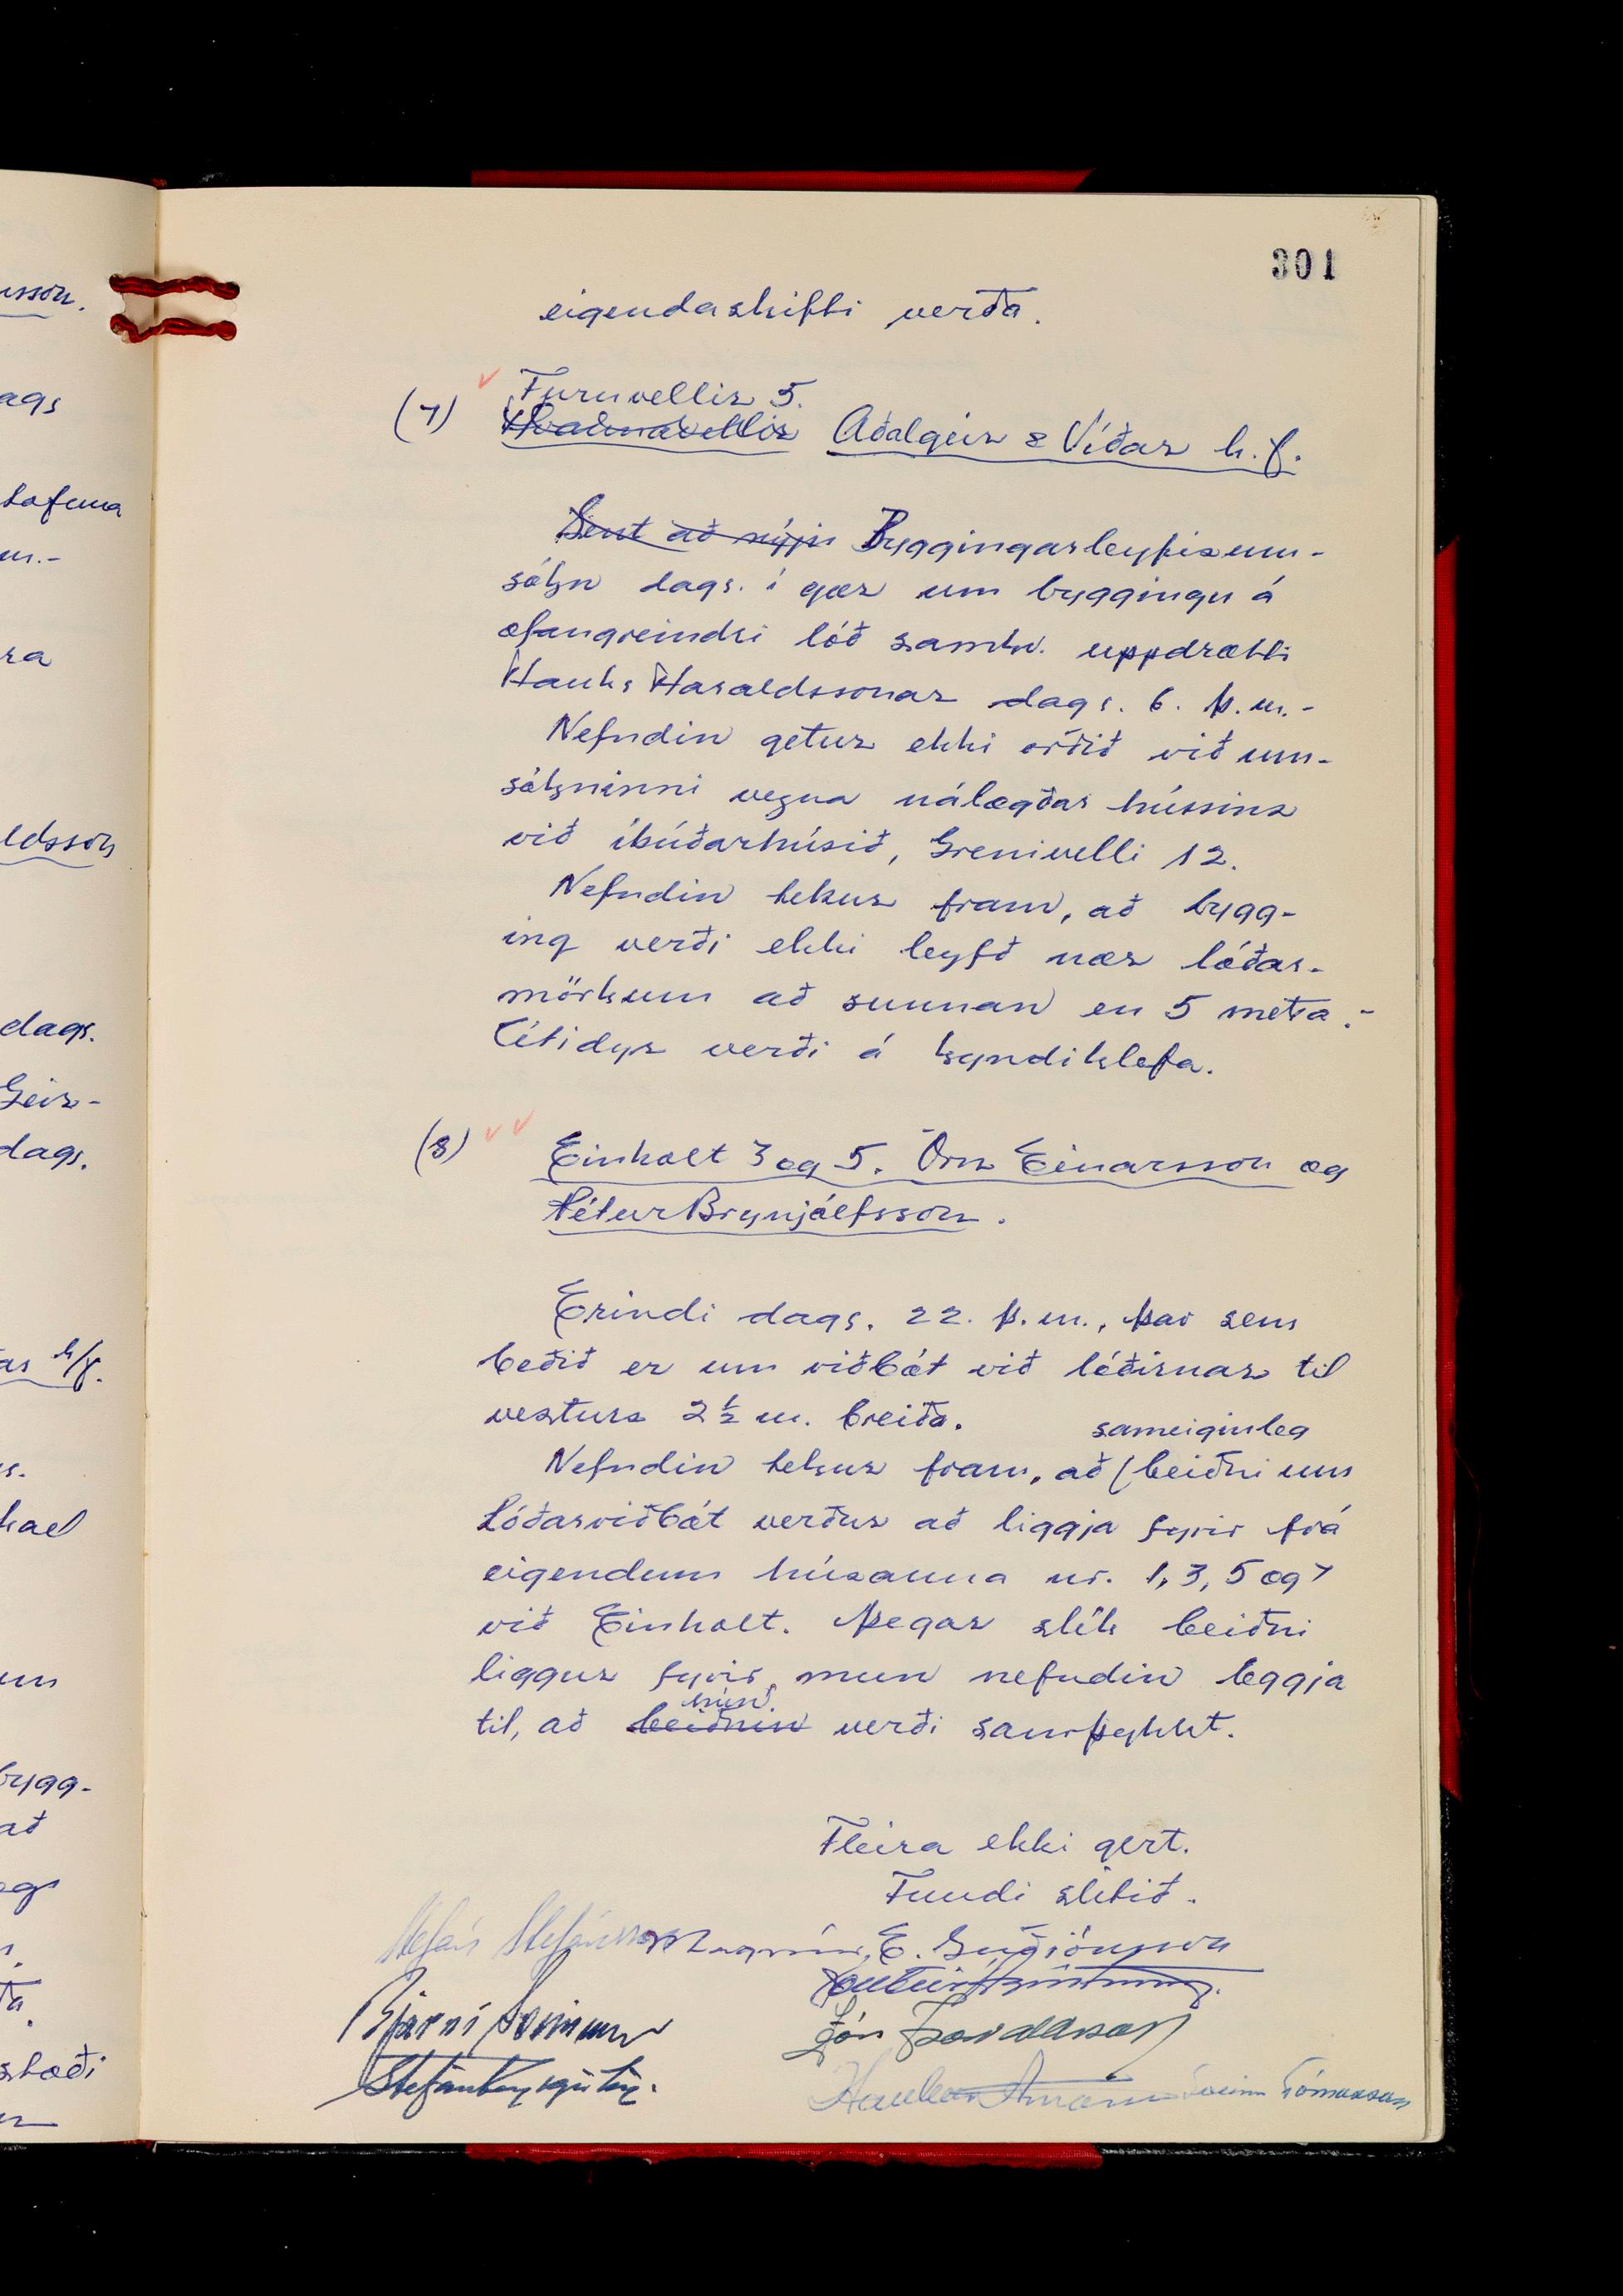 301
eigendaskifti verða.
(7) Furuvellir 5.
Hvannavellir Aðalgeir & Viðar h.f.
Sent að nýju Byggingarleyfisum-
sókn dags. í gær um byggingu á
ofangreindri lóð samkv. uppdrætti
Hauks Haraldssonar dags. 6. þ.m.-
Nefndin getur ekki orðið við um-
sókninni vegna nálægðar hússins
við íbúðarhúsið, Grenivelli 12.
Nefndin tekur fram, að bygg-
ing verði ekki leyfð nær lóðar-
mörkum að sunnan en 5 metra.-
Útidyr verði á kyndiklefa.
(8) Einholt 3 og 5. Örn Einarsson og
Pétur Brynjólfsson.
Erindi dags. 22. þ.m., þar sem
beðið er um viðbót við lóðirnar til
vesturs 2½ m. breiða.
sameiginleg
Nefndin tekur fram, að beiðni um
lóðarviðbót verður að liggja fyrir frá
eigendum húsanna nr. 1, 3, 5 og 7
við Einholt. Þegar slík beiðni
liggur fyrir, mun nefndin leggja
hún
til, að beiðnin verði samþykkt.
Fleira ekki gert.
Fundi slitið.
Stefán Stefánsson Magnús E. Guðjónsson
Bjarni Sveinsson
Jón
Haukur Árnason Sveinn Tómasson
usson.
ags
m.-
ra
ldsson
dags.
Geir-
dags.
as h/f.
s.
um
bygg-
að